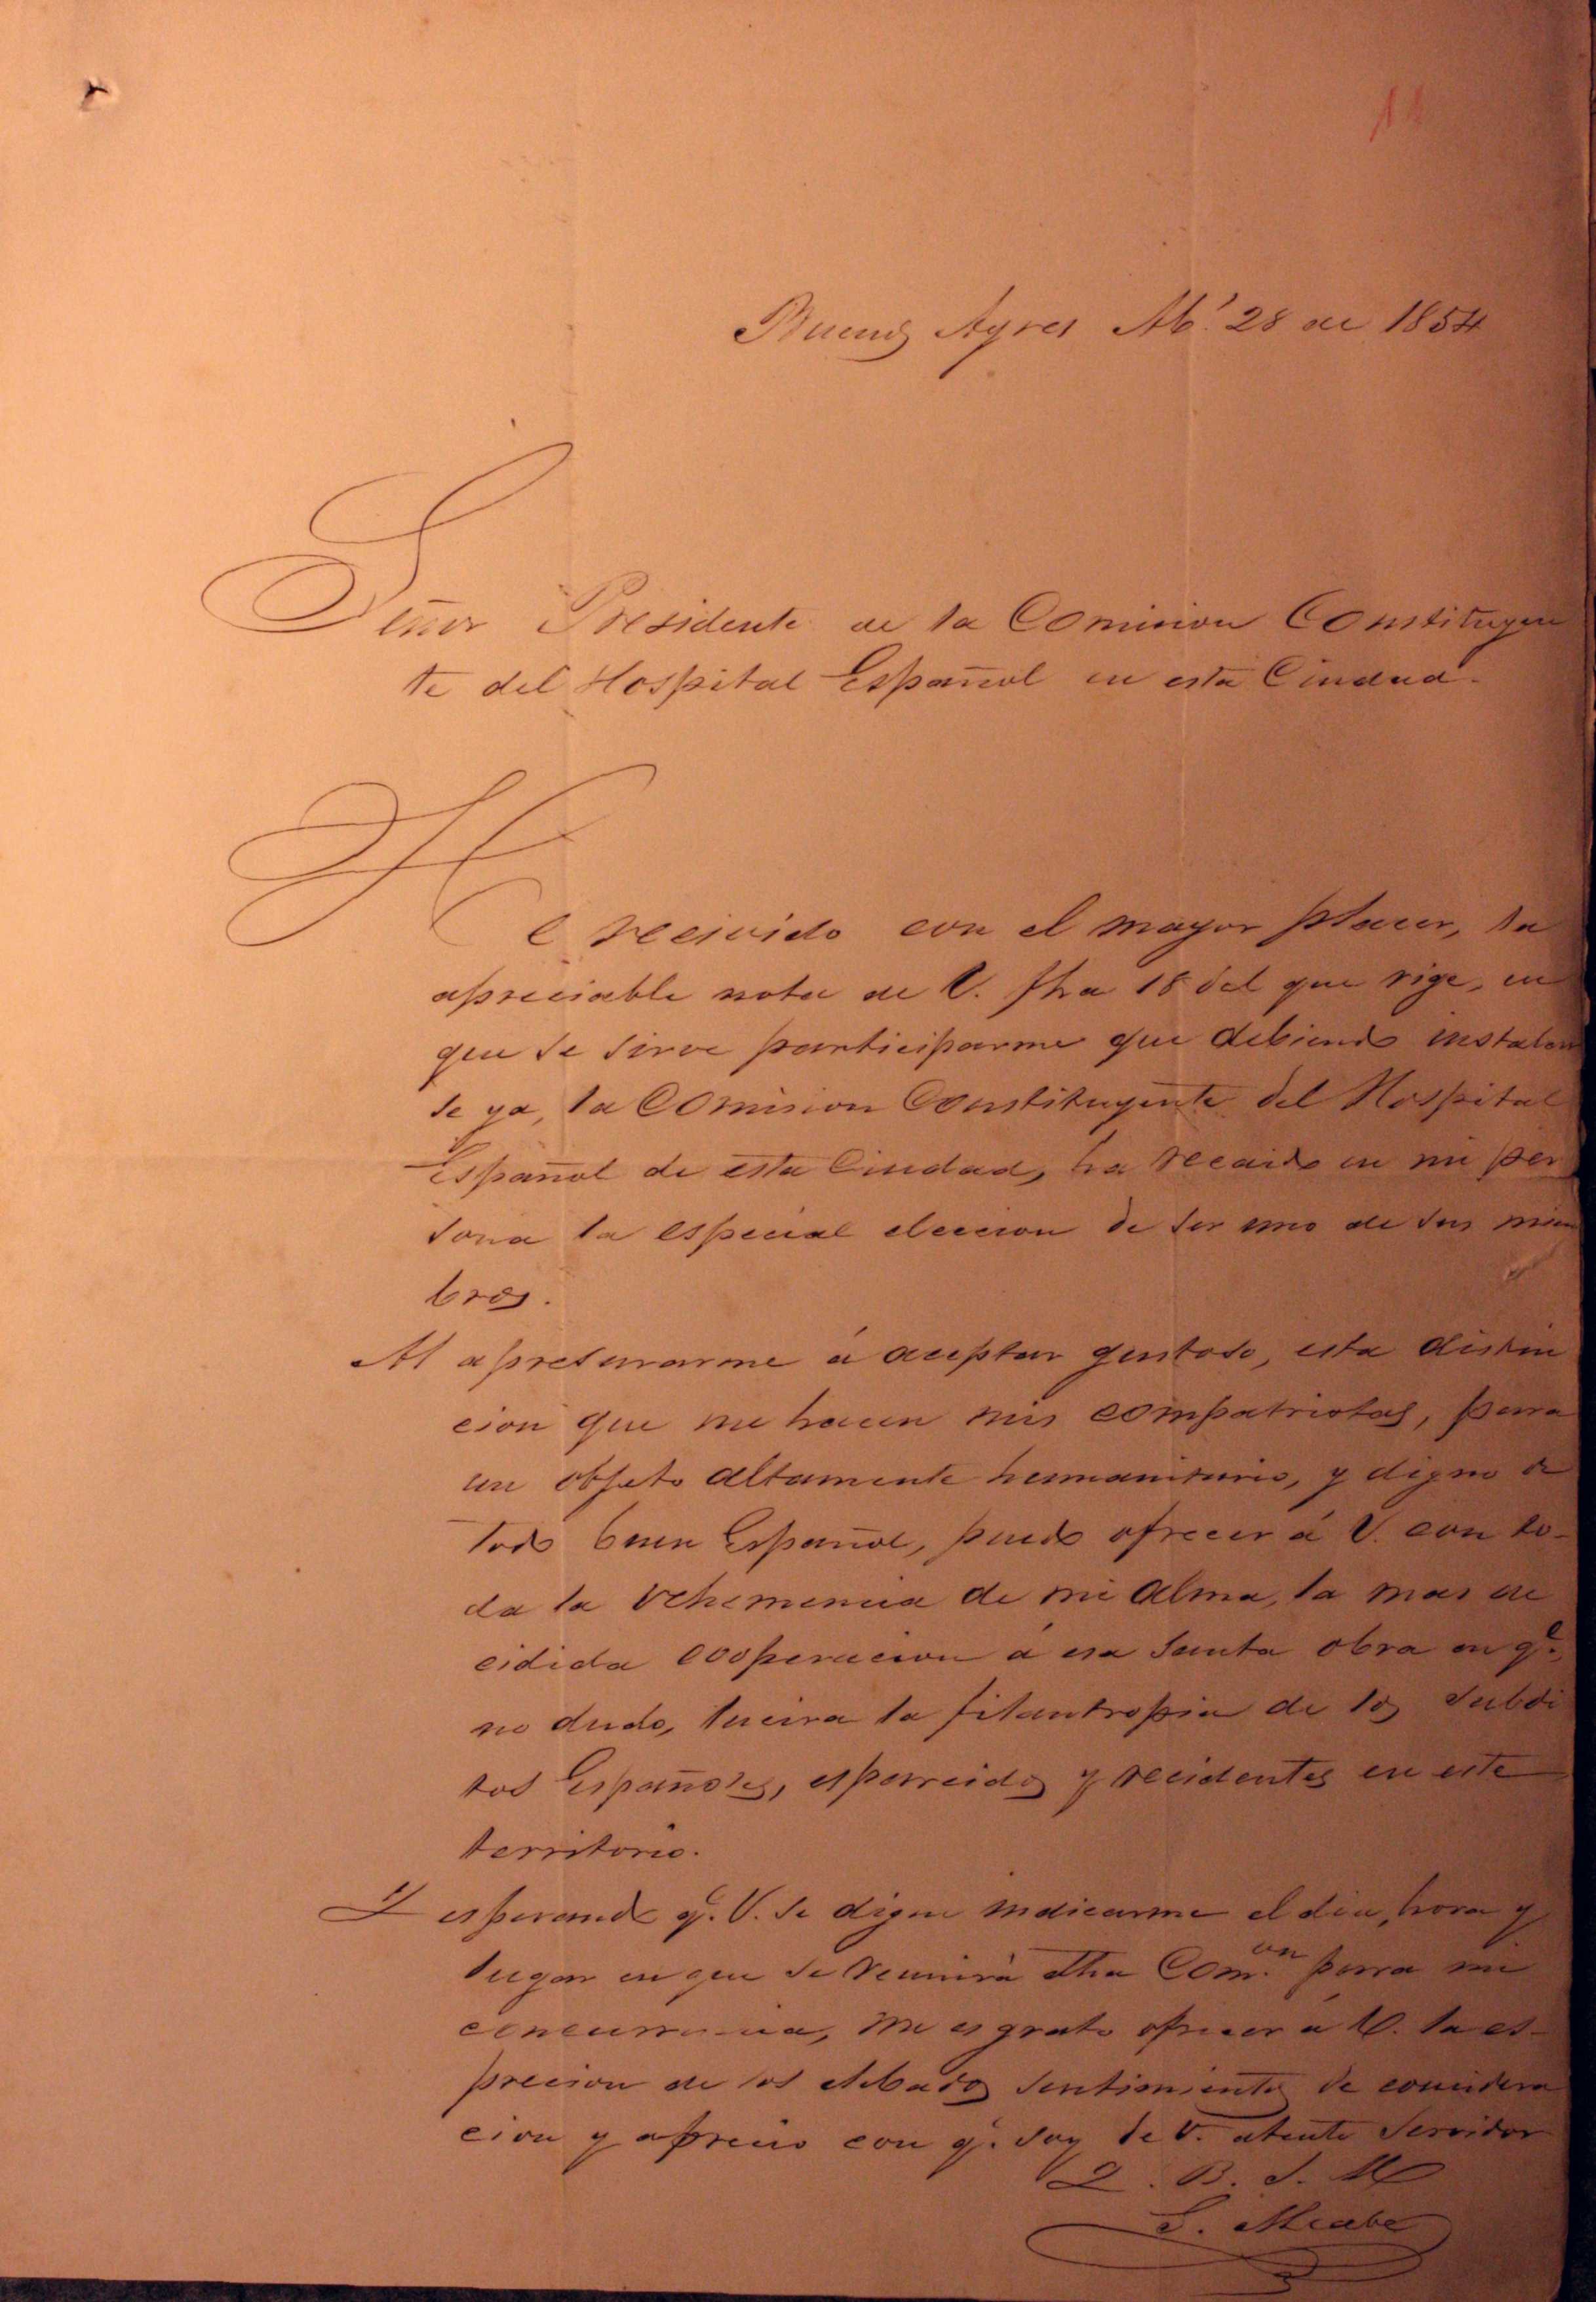 11
Buenos Ayres Ab.l 28 de 1854
Señor Presidente de la Comision Constituyen
te del Hospital Español en esta Ciudad.
He recivido con el mayor placer, la
apreciable nota de V. fha 18 del que rige, en
que se sirve participarme que debiendo instalar
se ya, la Comision Constituyente del Hospital
Español de esta Ciudad, ha recaido en mi per
sona la especial eleccion de ser uno de sus miem
bros.
Al apresurarme á aceptar gustoso, esta distin
cion que me hacen mis compatriotas, para
un objeto altamente humanitario, y digno de
todo buen Español, puedo ofrecer á V. con to-
da la vehemencia de mi alma, la mas de
cidida cooperacion á esa santa obra en q.e,
no dudo, lucira la filantropia de los subdi
tos Españoles, esparcidos y recidentes en este
territorio.
Y esperando q.e V. se digne indicarme el dia, hora y
lugar en que se reunirá dha Com.on para mi
concurrencia, me es grato ofrecer á V. la es-
precion de los elebados sentimientos de concidera
cion y aprecio con q.e soy de V. atento servidor
Q. B. S. M